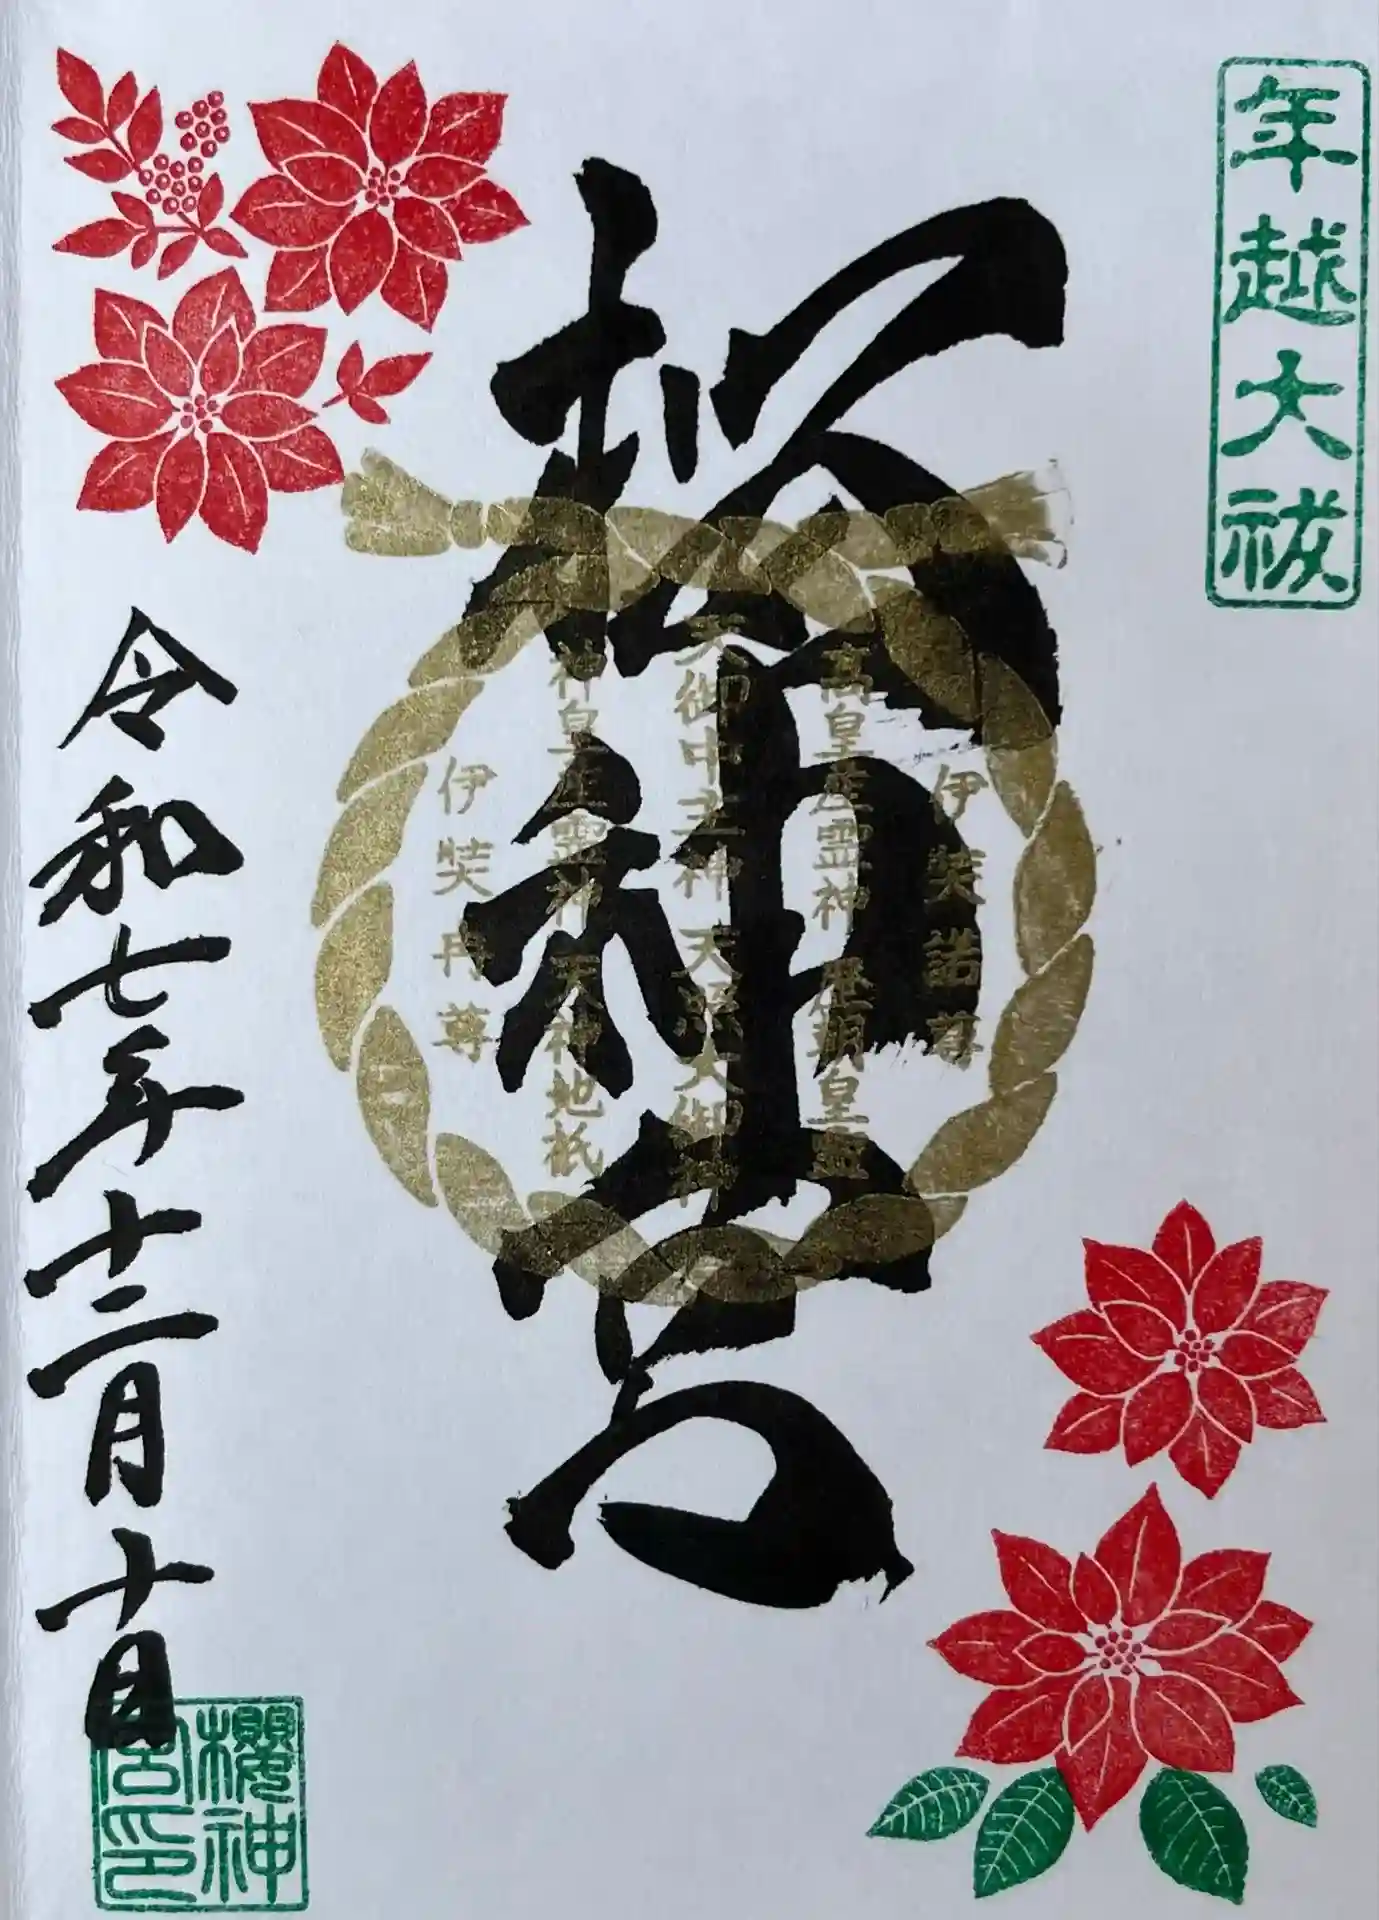 年越大祓
桜神宮
伊弉諾尊
高皇産霊神 歴朝皇霊
天御中主神 天照大御神
神皇産霊神 天神地祇
伊弉冉尊
令和七年十二月十日
櫻神宮印